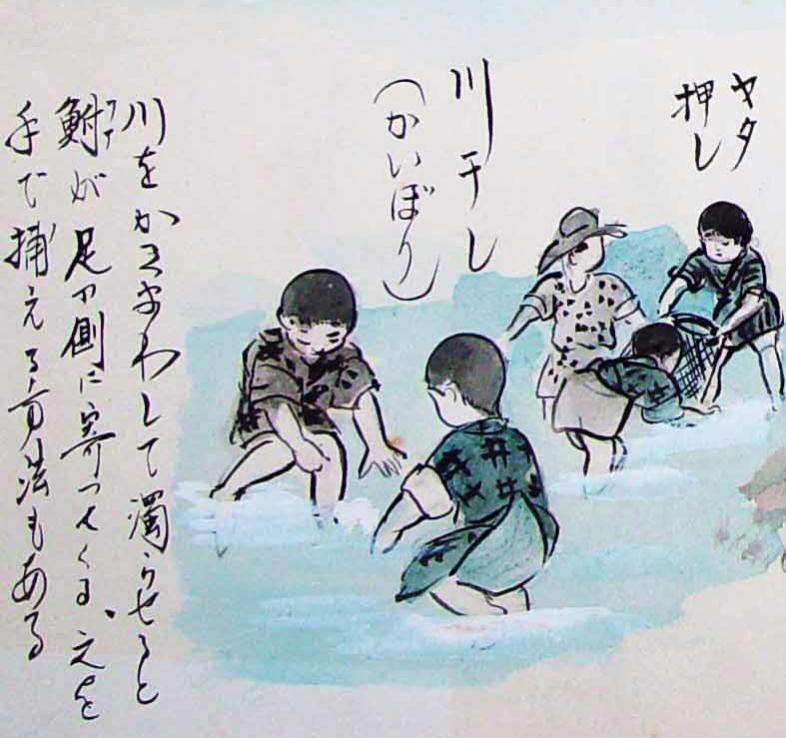 ヤタ
押し
川干し
（かいぼり）
川をかきまわして濁らせると
鮒が足の側に寄ってくる、之を
手で捕える方法もある